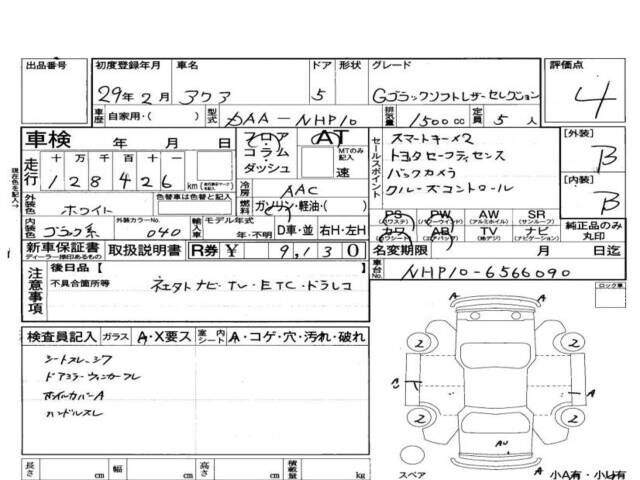 出品番号
初度登録年月 車名 ドア 形状 グレード 評価点
29年2月 アクア 5 Gブラックソフトレザーセレクション 4
車歴 自家用・( ) 型式 DAA-NHP10 排気量 1500cc 定員 5人
車検 年 月 日 フロア・コラム・ダッシュ AT MTのみ記入 速
走行 十万千百十 128426 km
色替車は色替と記入
冷房 AAC
燃料 ガソリン・軽油・( )
セールスポイント
スマートキー×2
トヨタセーフティセンス
バックカメラ
クルーズコントロール
[外装] B
[内装] B
現在色を記入→
外装色 ホワイト
内装色 ブラック系 外装カラーNo. 040 輸入車 モデル年式 年・不明 D車・並 右H・左H
PS (パワステ) PW (パワーウインド) AW (アルミホイル) SR (サンルーフ)
カワ (カワシート) AB (エアバッグ) TV (地デジ) ナビ (ナビゲーション)
純正品のみ丸印
新車保証書 ディーラー捺印あるもの 取扱説明書 R券 ¥ 9,130
名変期限 月 日迄
車台No. NHP10-6566090
注意事項 後日品[ ]
不具合箇所等 ナビ・TV・ETC・ドラレコ
ロック車
検査員記入 ガラス A・X要ス 室内シート A・コゲ・穴・汚れ・破れ
シートスレ・シワ
ドアミラーウィンカーワレ
ホイルカバーA
ハンドルスレ
A
2 2
A
2 2
AU
A
スペア
小A有・小U有
長さ cm 幅 cm 高さ cm 積載量 kg